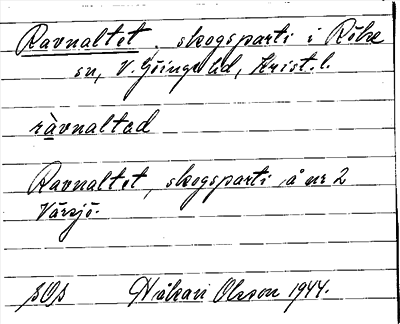 Ravnaltet, skogsparti i Röke
sn, V. Göinge hd, Krist. l.
ràvnaltad
Ravnaltet, skogsparti å nr 2
Värsjö.
Håkan Olsson 1944.